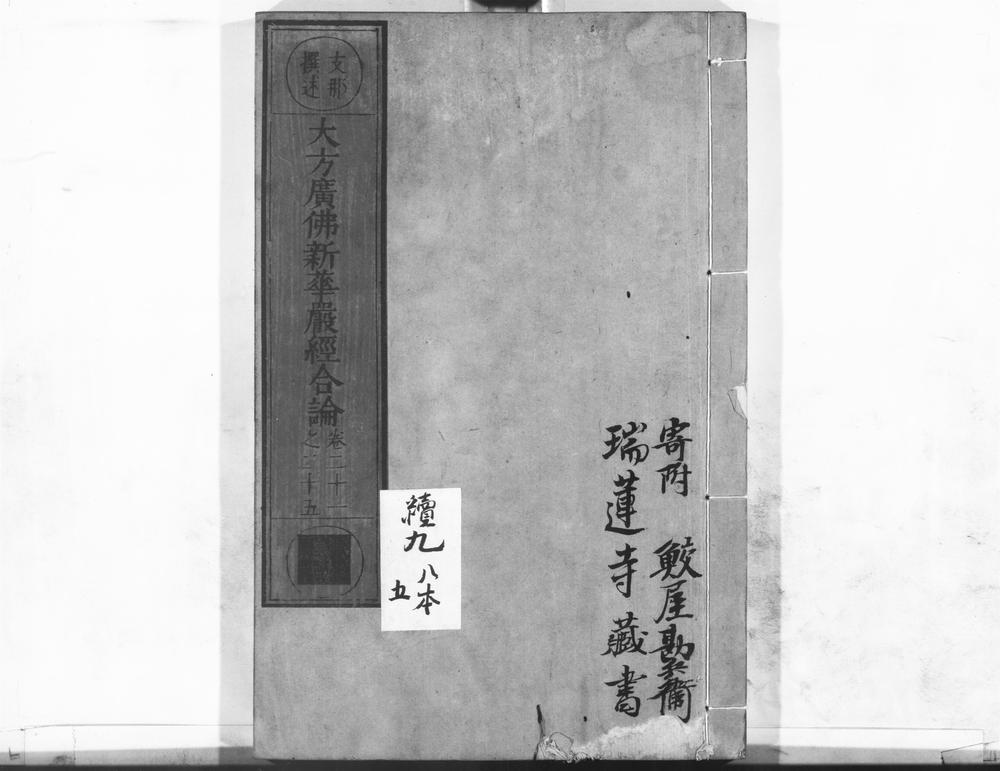 寄附 鮫屋勘兵衛
瑞蓮寺藏書
續九
八本
五
支那
撰述
大方廣佛新華嚴經合論
卷二十一
之二十五